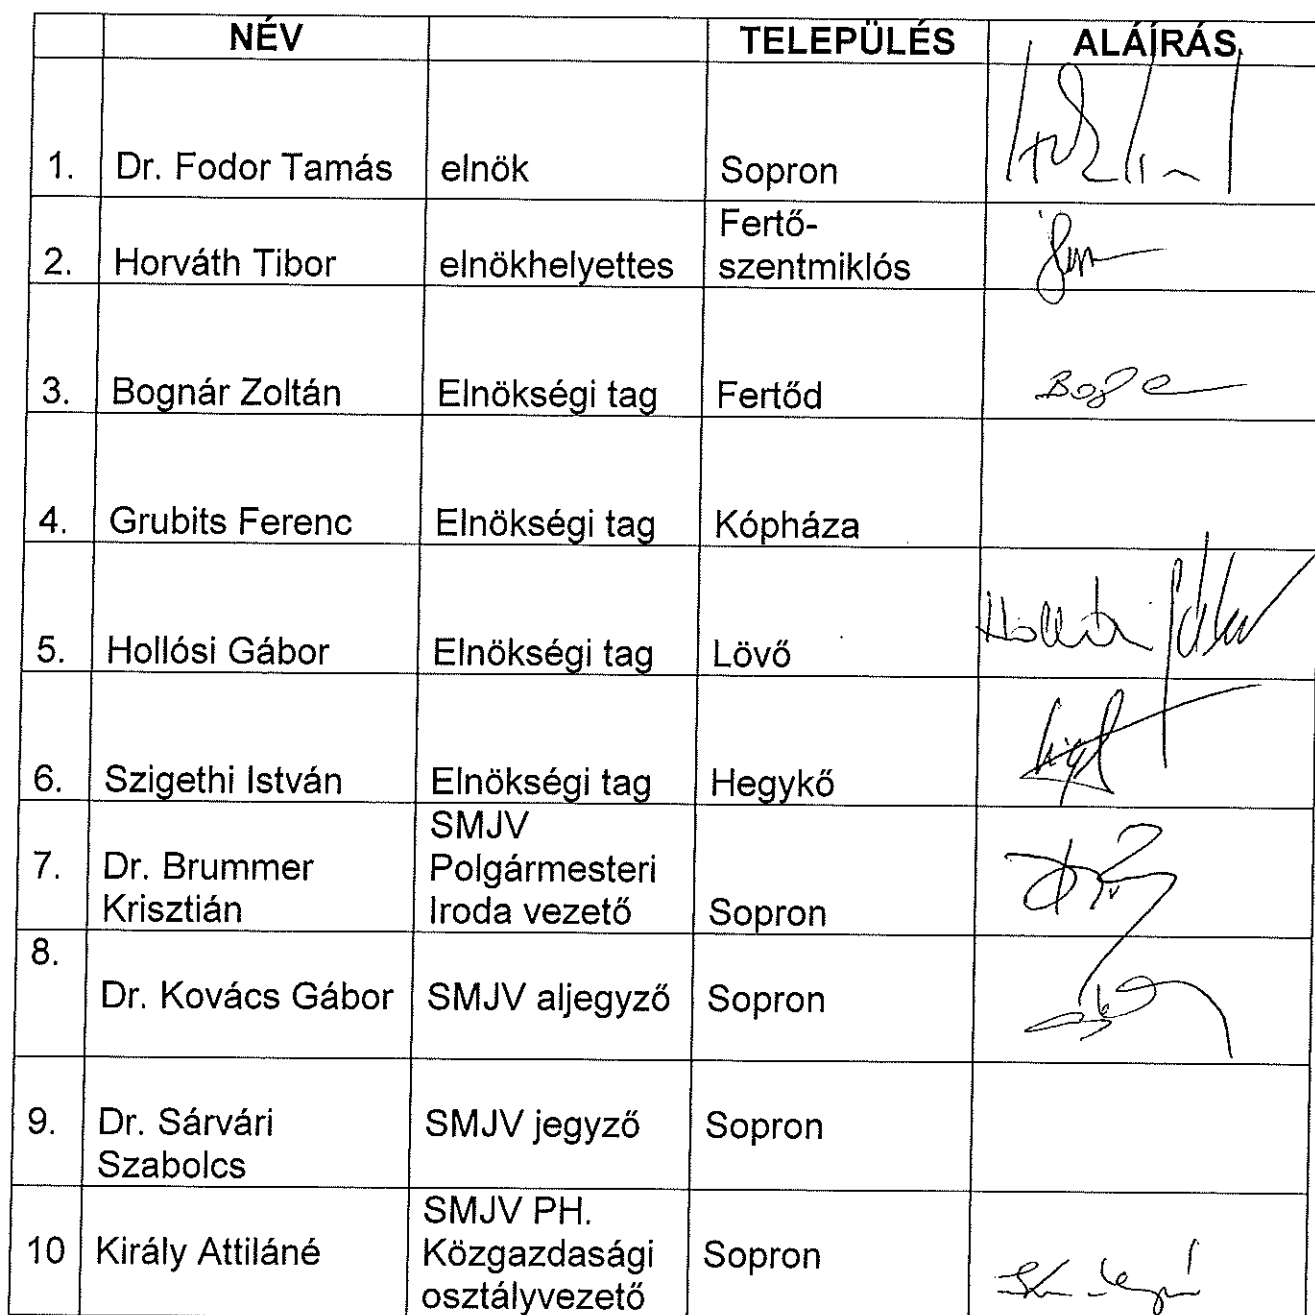 NÉV TELEPÜLÉS ALÁÍRÁS
1. Dr. Fodor Tamás elnök Sopron
2. Horváth Tibor elnökhelyettes Fertő-
szentmiklós
3. Bognár Zoltán Elnökségi tag Fertőd
4. Grubits Ferenc Elnökségi tag Kópháza
5. Hollósi Gábor Elnökségi tag Lövő
6. Szigethi István Elnökségi tag Hegykő
7. Dr. Brummer
Krisztián
SMJV
Polgármesteri
Iroda vezető
Sopron
8.
Dr. Kovács Gábor SMJV aljegyző Sopron
9. Dr. Sárvári
Szabolcs
SMJV jegyző Sopron
10 Király Attiláné
SMJV PH.
Közgazdasági
osztályvezető
Sopron